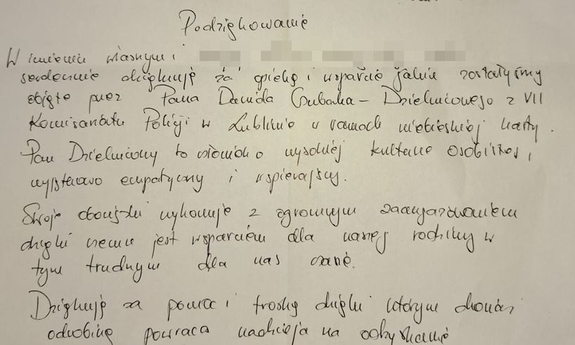 Podziękowanie
W imieniu własnym i
serdecznie dziękuję za opiekę i wsparcie jakim zostałyśmy
objęte przez Pana Dawida Grubacka – Dzielnicowego z VII
Komisariatu Policji w Lublinie w ramach niebieskiej karty.
Pan Dzielnicowy to człowiek o wysokiej kulturze osobistej,
wyjątkowo empatyczny i wspierający.
Swoje obowiązki wykonuje z ogromnym zaangażowaniem
dzięki czemu jest wsparciem dla naszej rodziny w
tym trudnym dla nas czasie.
Dziękuję za pomoc i troskę dzięki którym chociaż
odrobinę powraca nadzieja na odzyskanie